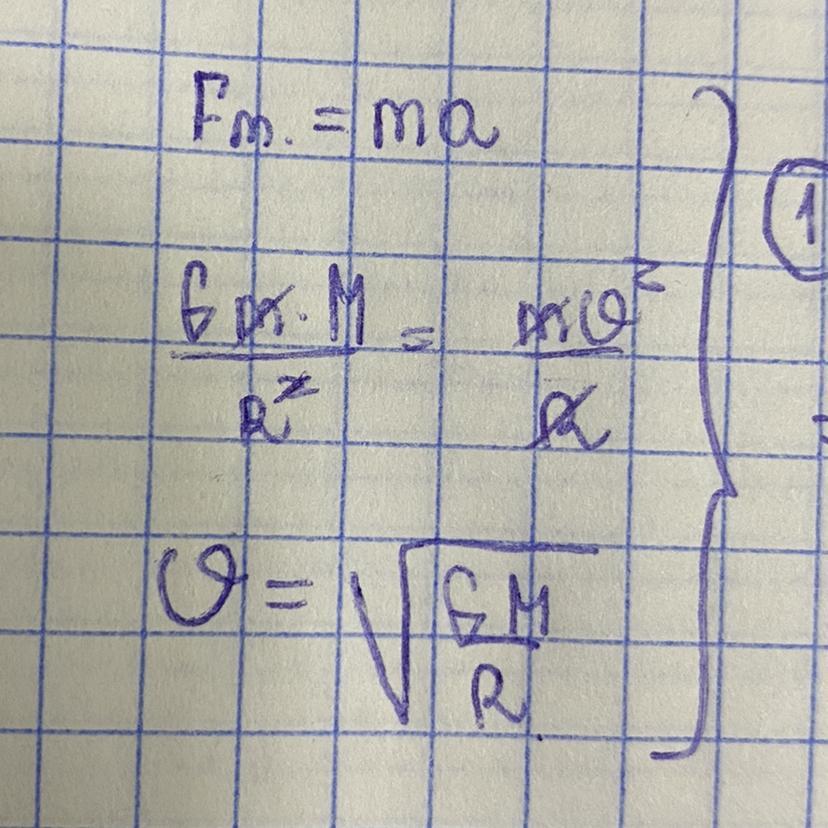 Fт. = ma
G m · M / R² = mυ² / R
υ = √(GM / R)
1